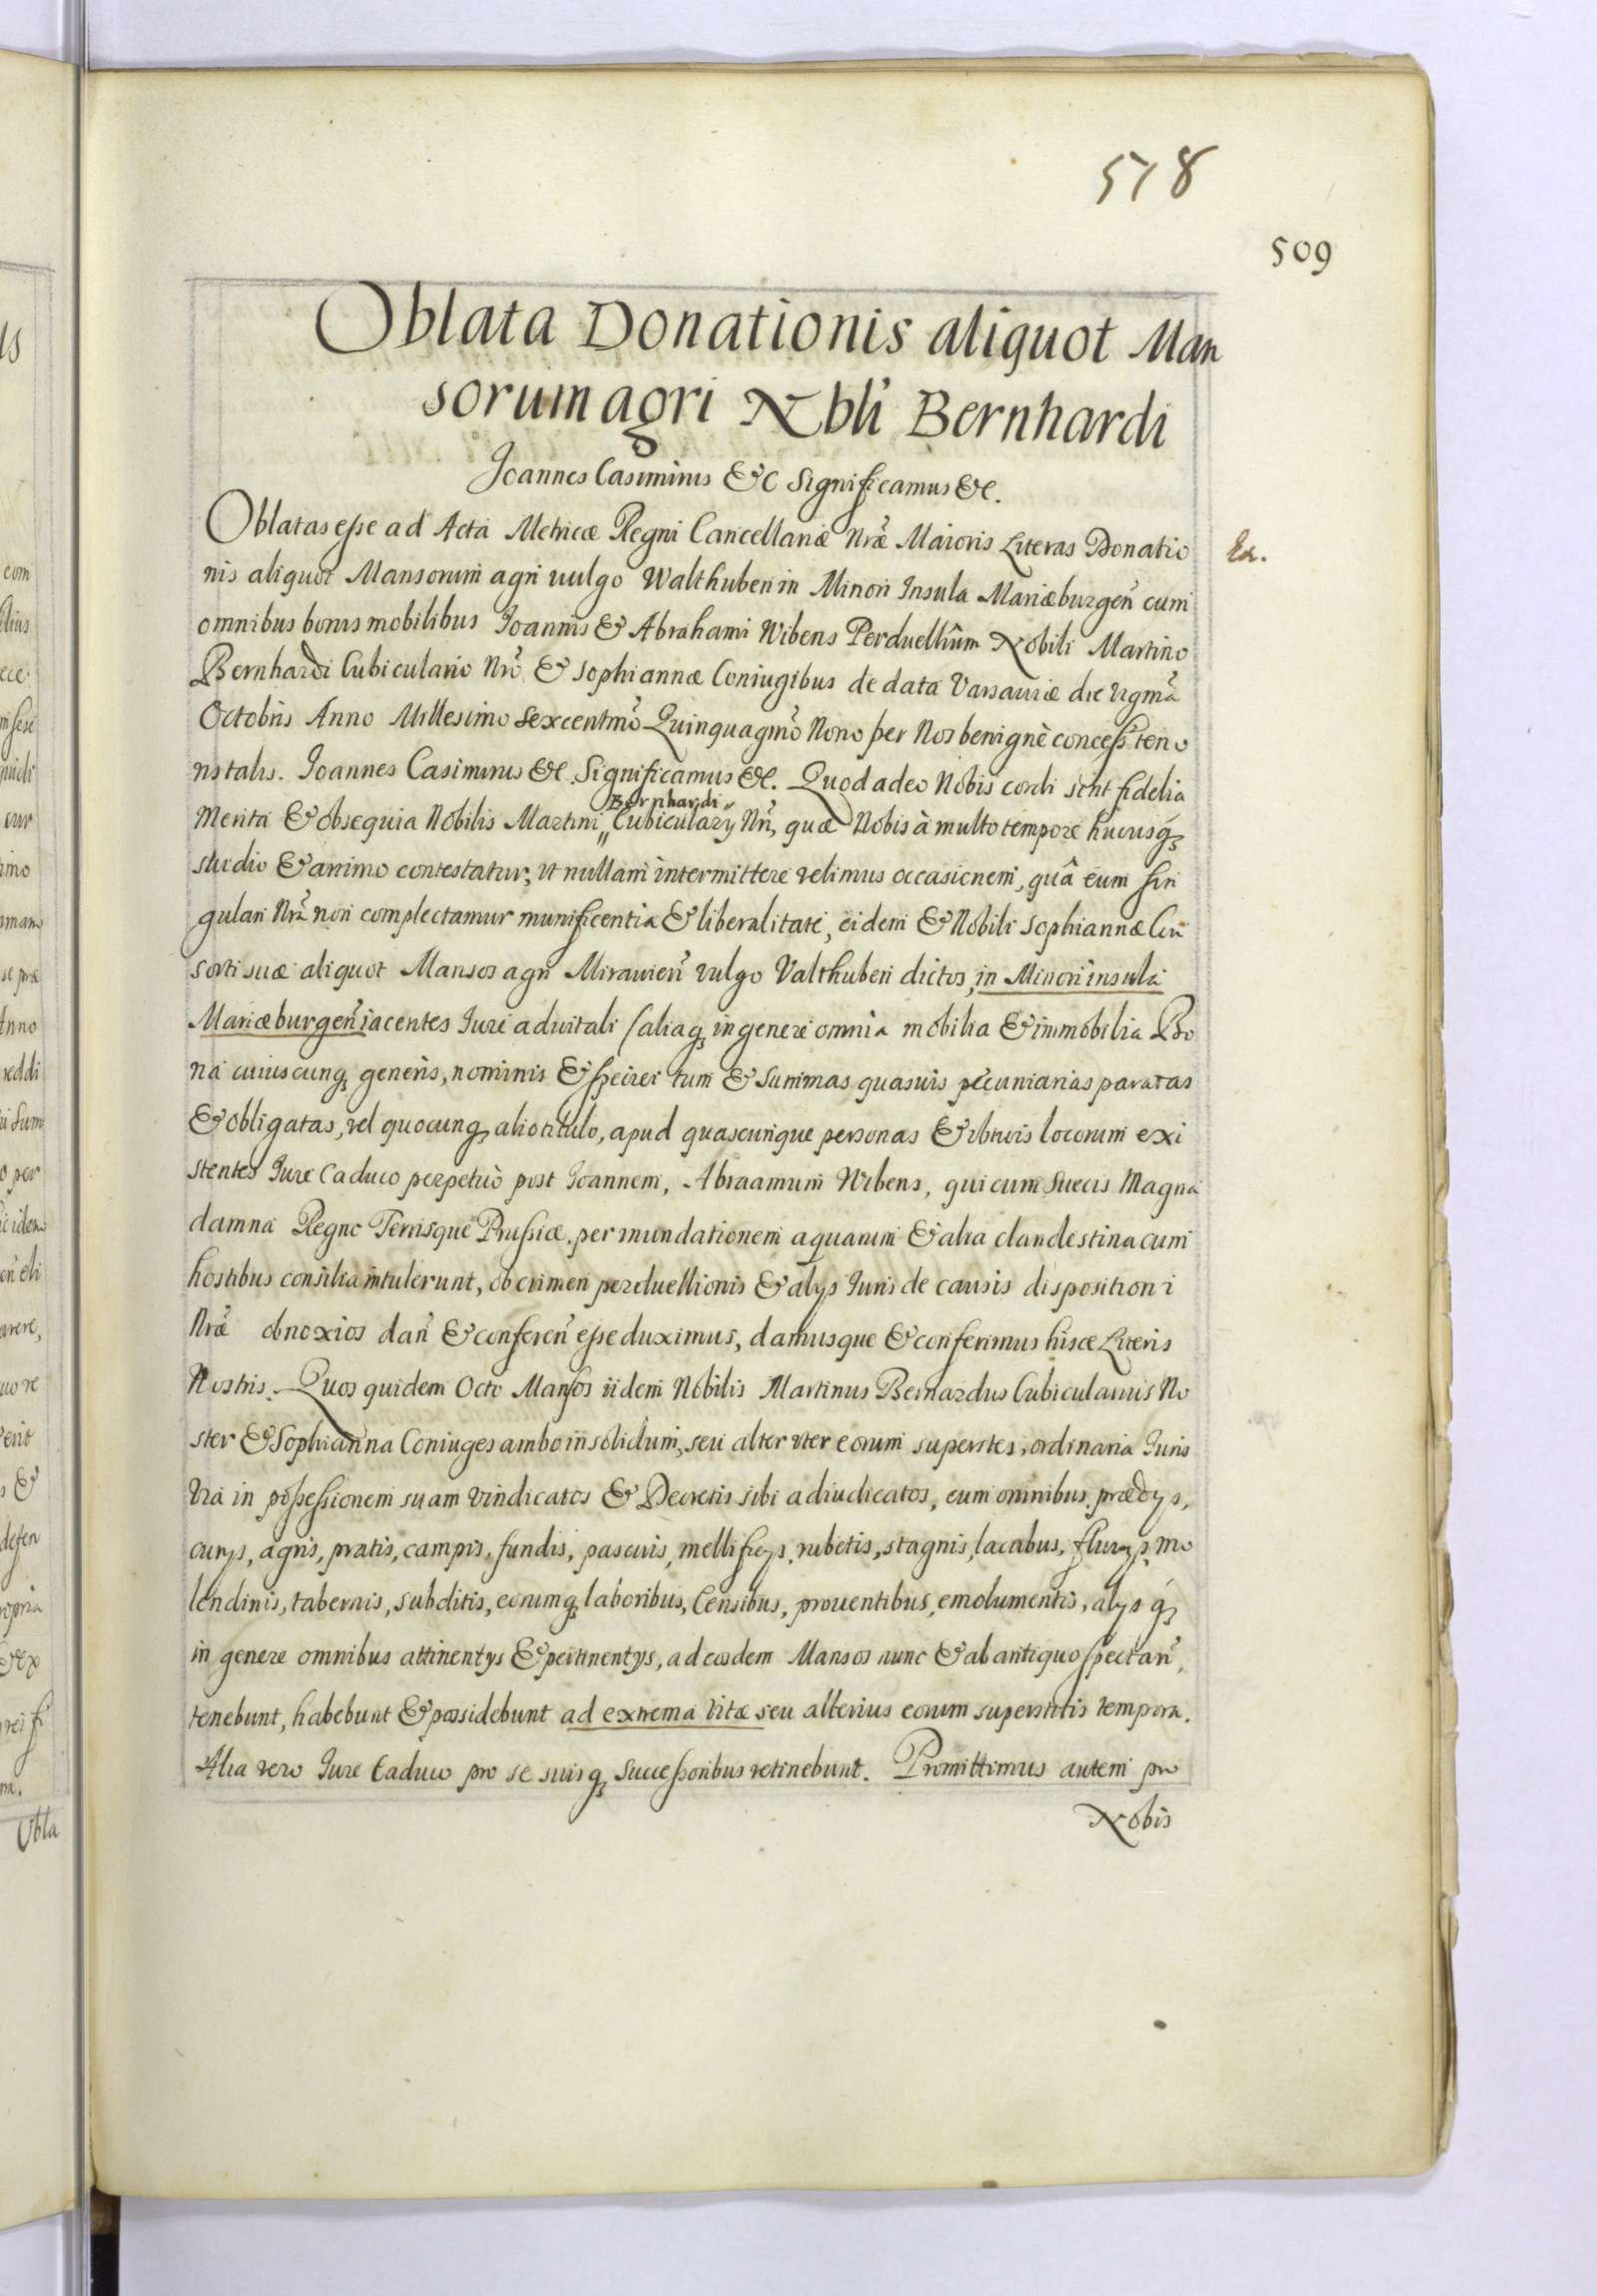 578
509
Oblata Donationis aliquot Man
sorum agri Nbli Bernhardi
Joannes Casimirus &c Significamus &c.
Oblatas eße ad Acta Metricæ Regni Cancellariæ nræ Maioris Literas Donatio
Ex.
nis aliquot Mansorum agri uulgo Walthuben in Minori Insula Mariæburgen̄ cum
omnibus bonis mobilibus Joannis & Abrahami Wibens Perduellium Nobili Martino
Bernhardi Cubiculario Nro & Sophiannæ Coniugibus de data Varsauiæ die vigmā
Octobris Anno Millesimo Sexcentmō Quinquagmō Nono per Nos benignè conceß. teno
ris talis. Joannes Casimirus &c. Significamus &c. Quod adeo Nobis cordi sint fidelia
Bernhardi
Merita & obsequia Nobilis Martini „ Cubicularij Nri, quæ Nobis à multo tempore hucusq;
studio & animo contestatur, ut nullam intermittere velimus occasionem, quâ eum sin
gulari Nrā non complectamur munificentia & liberalitate, eidem & Nobili Sophiannæ Con
sorti suæ aliquot Mansos agri Mirauien̄ vulgo Valthuben dictos, in Minori insula
Mariæburgen̄ iacentes Jure aduitali / aliaq; in genere omnia mobilia & immobilia Bo
na cuiuscunq; generis, nominis & speciei tum & summas quasuis pecuniarias paratas
& obligatas, vel quocunq; alio titulo, apud quascunque personas & vbiuis locorum exi
stentes Jure Caduco perpetuò post Joannem, Abraamum Wibens, qui cum Suecis Magna
damna Regno Terrisque Prußiæ. per inundationem aquarum & alia clandestina cum
hostibus consilia intulerunt, ob crimen perduellionis & alijs Juris de causis dispositioni
Nræ obnoxios dan̄ & conferen̄ eße duximus, damusque & conferimus hisce Literis
Nostris. Quos quidem Octo Mansos iidem Nobilis Martinus Bernardus Cubicularius No
ster & Sophianna Coniuges ambo in solidum, seu alter uter eorum superstes, ordinaria Juris
via in poßeßionem suam vindicatos & Decretis sibi adiudicatos, cum omnibus prædijs,
curijs, agris, pratis, campis, fundis, pascuis, mellificijs, rubetis, stagnis, lacubus, fluuijs, mo
lendinis, tabernis, subditis, eorumq; laboribus, Censibus, prouentibus, emolumentis, alijs q;
in genere omnibus attinentijs & pertinentijs, ad eosdem Mansos nunc & ab antiquo spectan̄,
tenebunt, habebunt & possidebunt ad extrema vitæ seu alterius eorum superstitis tempora.
Alia vero Jure Caduco pro se suisq; Succeßoribus retinebunt. Promittimus autem pro
Nobis